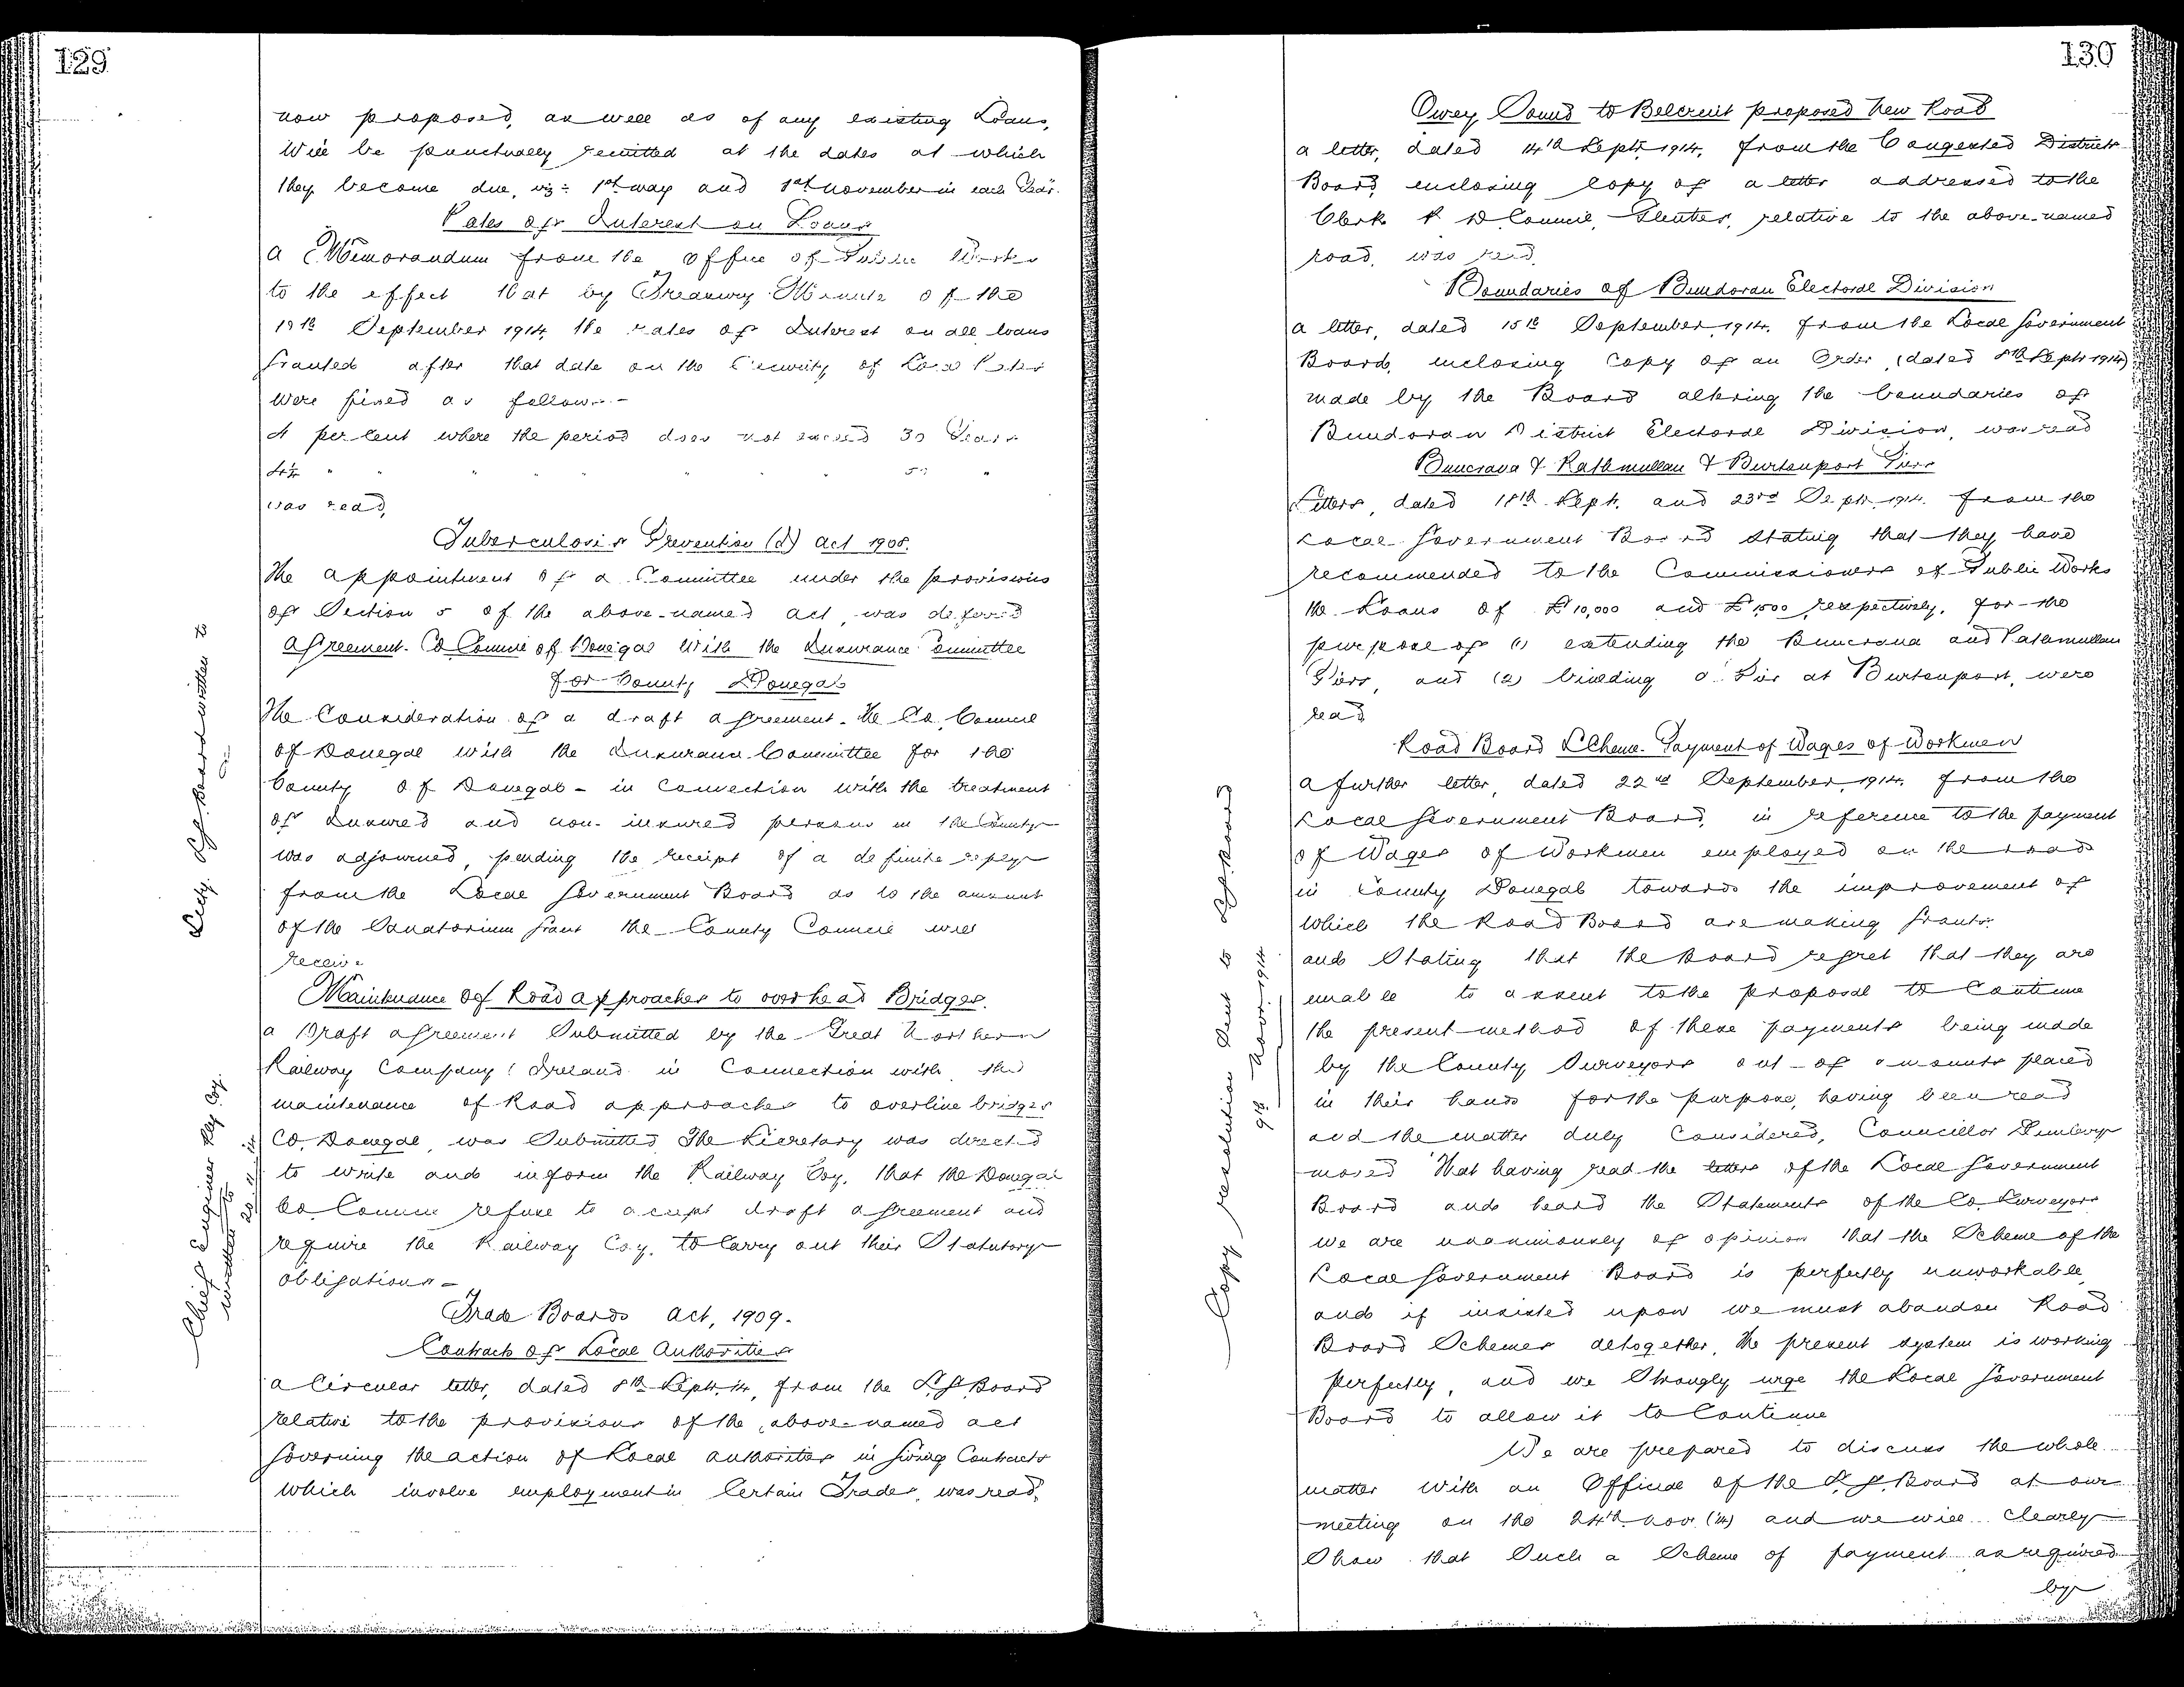 129
now proposed, as well as of any existing Loans,
Will be punctually remitted at the dates at which
they become due, viz:- 1st May and 1st November in each Year.
Rates of Interest on Loans
a Memorandum from the Office of Public Works
to the effect that by Treasury Minute of the
September 1914, the rates of Interest on all loans
Granted after that date on the Security of Local Rates
Were fixed as follows:-
4 per Cent where the period does not exceed 30 Years
4¼ " " " " " " " 50 "
was read,
Tuberculosis Prevention (I) Act 1908.
The appointment of a Committee under the provisions
of Section 5 of the above-named Act, was deferred
Agreement. Co Council of Donegal With the Insurance Committee
for County Donegal
The Consideration of a draft agreement. The Co. Council
of Donegal with the Insurance Committee for the
County of Donegal - in Connection with the treatment
of Insured and non-insured persons in the County
was adjourned, pending the receipt of a definite reply
from the Local Government Board as to the amount
of the Sanatorium Grant the County Council will
receive
Secty. L.G. Board written to
Maintenance of Road approaches to overhead Bridges.
a Draft agreement Submitted by the Great Northern
Railway Company: Ireland in Connection with the
maintenance of Road approaches to overline bridges
Co. Donegal, was Submitted The Secretary was directed
to write and inform the Railway Coy. that the Donegal
Co. Council refuse to accept draft agreement and
require the Railway Coy. to Carry out their Statutory
obligations -
Chief Engineer Rly Coy.
written to
Trade Boards Act, 1909.
Contracts of Local Authorities
a Circular letter, dated 8th Sept. 14, from the L.G. Board
relative to the provisions of the above-named act
Governing the action of Local authorities in Giving Contracts
which involve employment in Certain Trades, was read.
130
Owey Sound to Belcruit proposed New Road
a letter, dated 14th Sept. 1914, from the Congested Districts
Board, enclosing Copy of a letter addressed to the
Clerk R D Council, Glenties, relative to the above-named
road, was read.
Boundaries of Bundoran Electoral Division
a letter, dated 15th September, 1914, from the Local Government
Board, enclosing Copy of an Order, (dated 8th Sept. 1914)
made by the Board altering the boundaries of
Bundoran District Electoral Division, was read
Buncrana & Rathmullan & Burtonport Piers
Letters, dated 18th Sept. and 23rd Sept. 1914. from the
Local Government Board stating that they have
recommended to the Commissioners of Public Works
the Loans of £10,000 and £1500 respectively, for the
purpose of (1) extending the Buncrana and Rathmullan
Piers, and (2) building a Pier at Burtonport, were
read
Road Board Scheme. Payment of Wages of Workmen
a further letter, dated 22nd September, 1914, from the
Local Government Board, in reference to the payment
of Wages of Workmen employed on the roads
in County Donegal towards the improvement of
which the Road Board are making Grants.
and Stating that the Board regret that they are
unable to assent to the proposal to Continue
the present method of these payments being made
by the County Surveyors out of amounts placed
in their hands for the purpose, having been read
and the matter duly Considered, Councillor
moved "That having read the letters of the Local Government
Board and heard the Statements of the Co. Surveyors
we are unanimously of opinion that the Scheme of the
Local Government Board is perfectly unworkable,
and if insisted upon we must abandon Road
Board Schemes altogether, the present system is working
perfectly, and we Strongly urge the Local Government
Board to allow it to Continue
Copy resolution Sent to L.G. Board
9th Novr. 1914
We are prepared to discuss the whole
matter with an Official of the L.G. Board at our
meeting on the 24th Nov. (14) and we will clearly
Show that Such a Scheme of payment as required
by